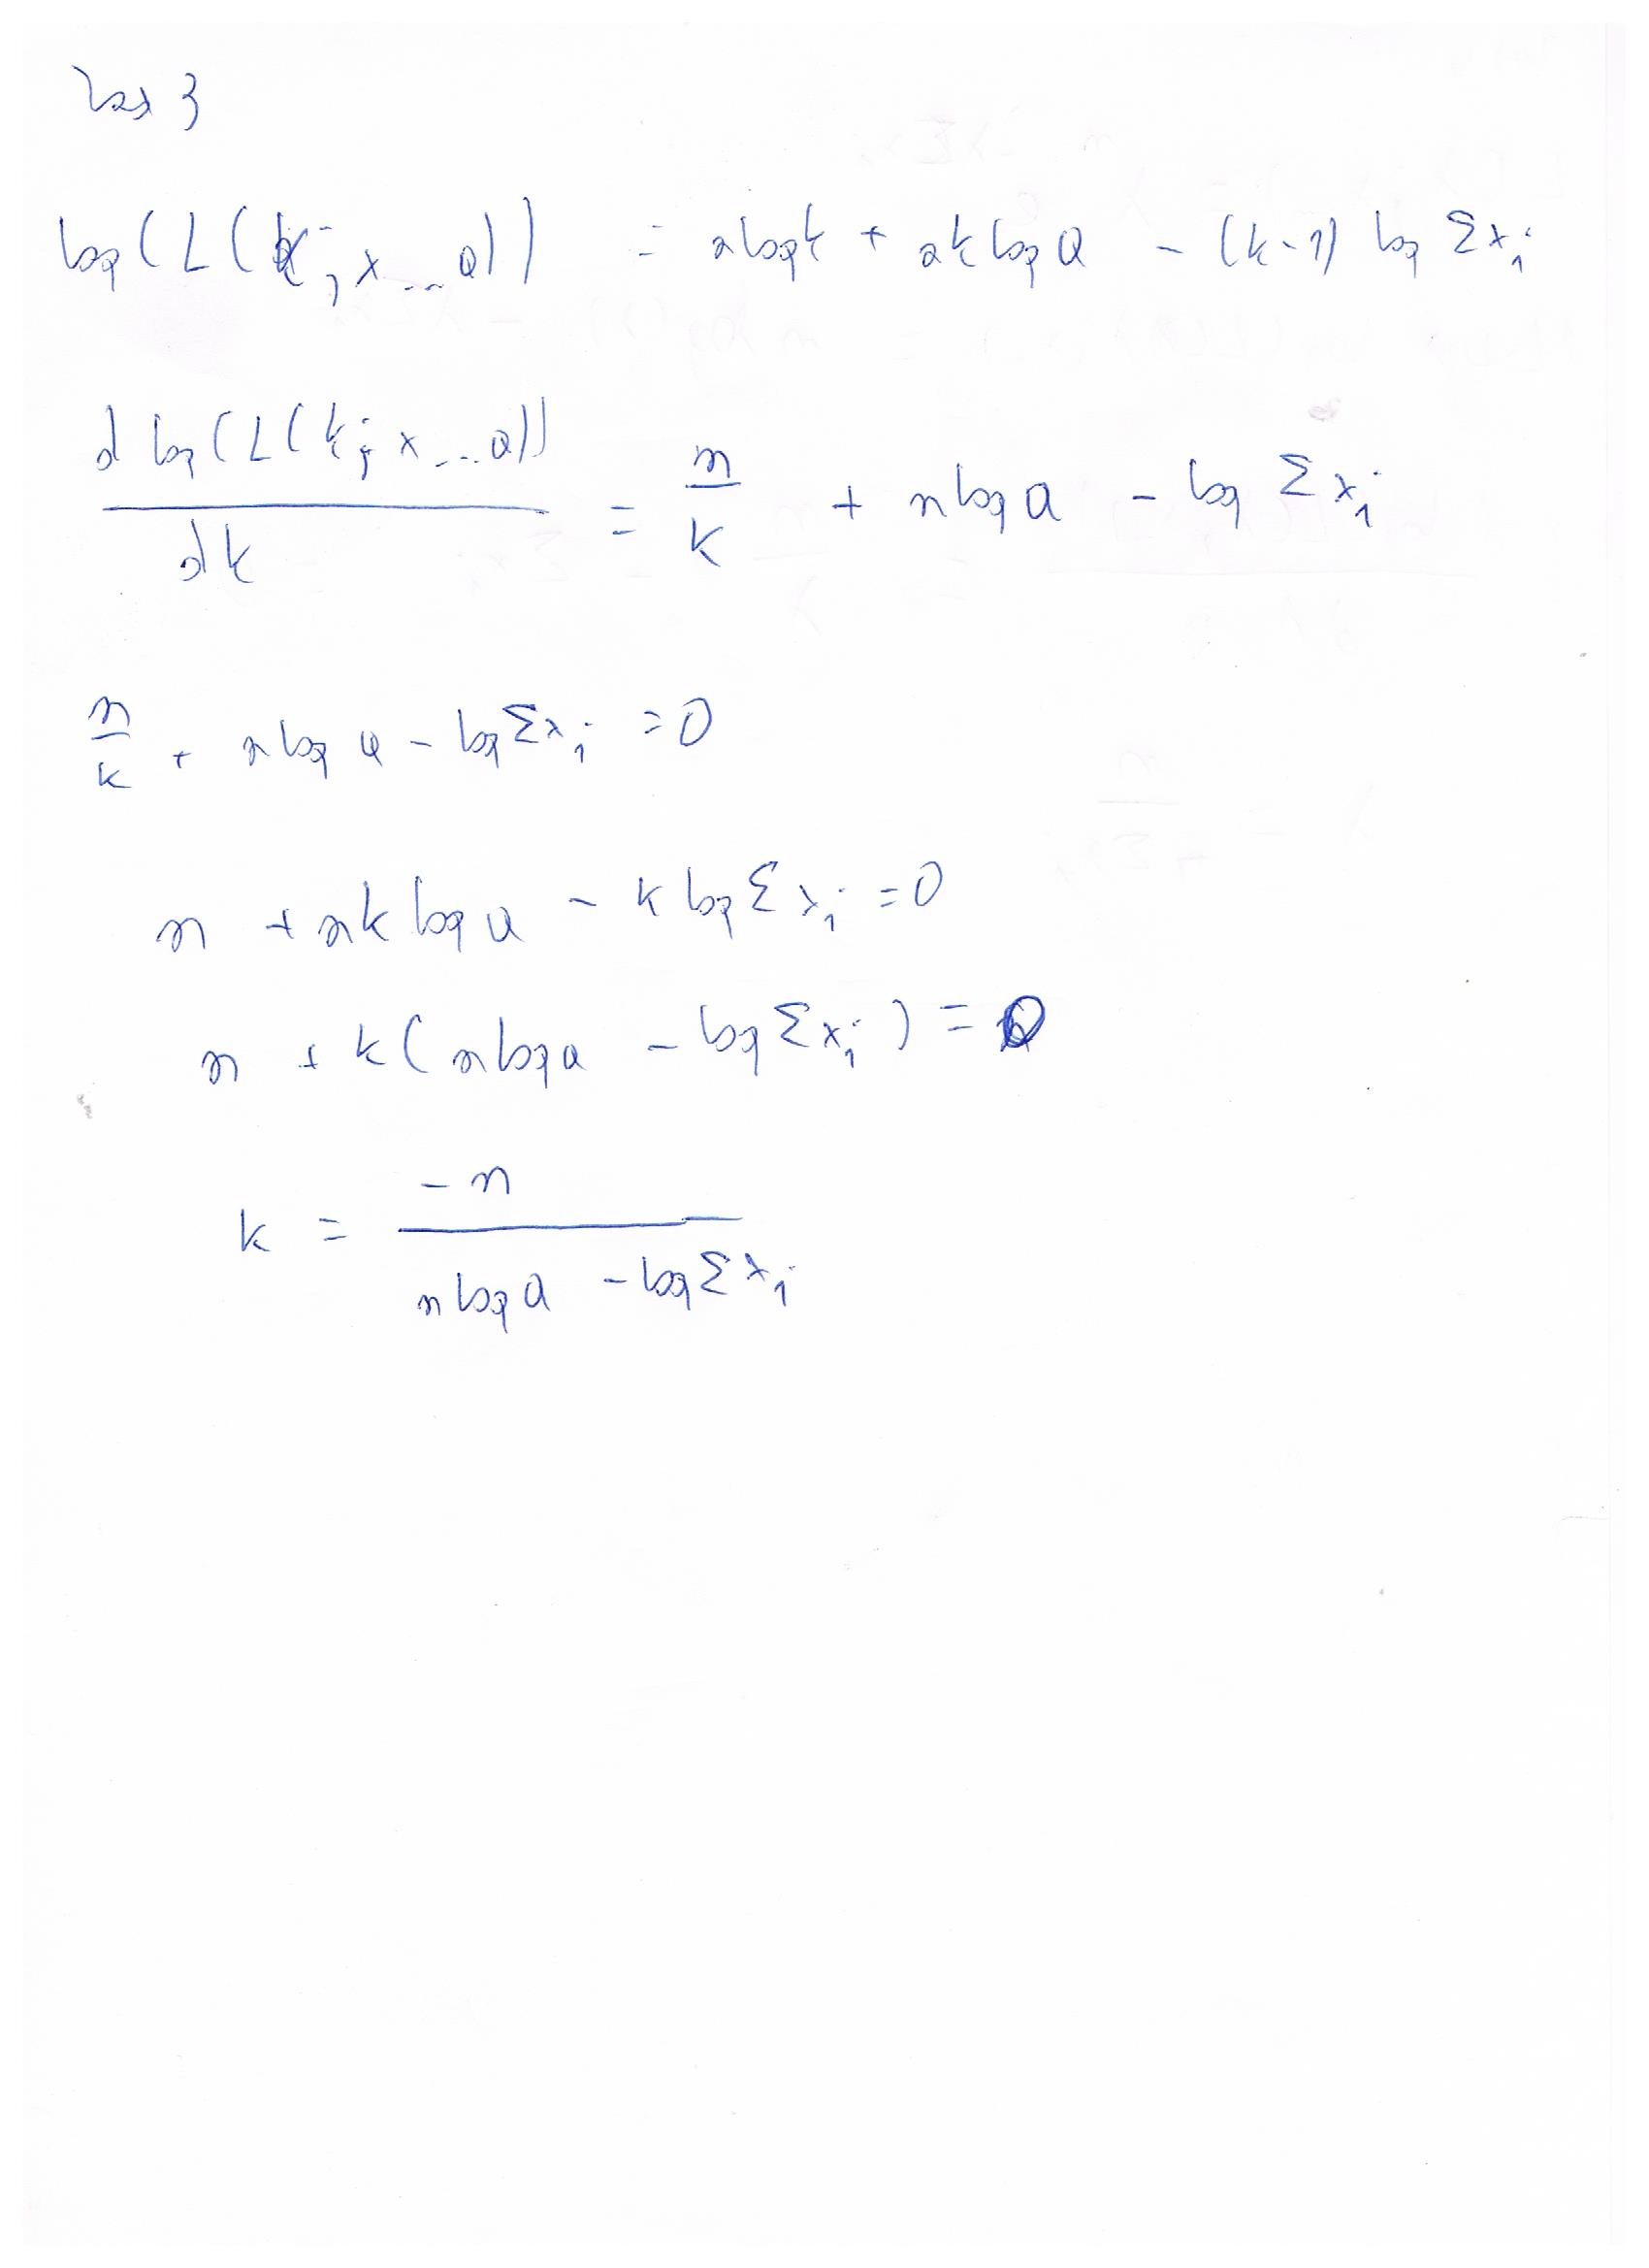 zad 3
log(L(k; x...a)) = n log k + nk log a - (k-1) log Σxi
d log(L(k; x...a)) / dk = n/k + n log a - log Σxi
n/k + n log a - log Σxi = 0
n + nk log a - k log Σxi = 0
n + k(n log a - log Σxi) = 0
k = -n / (n log a - log Σxi)